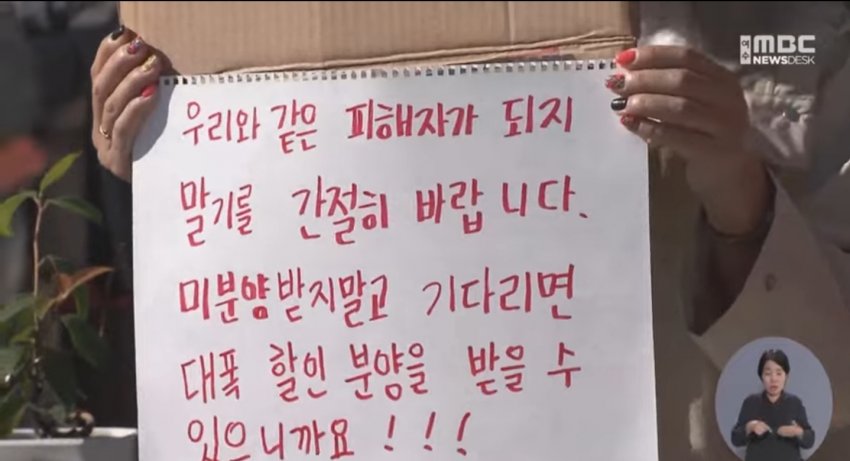 여수 MBC
NEWSDESK
우리와 같은 피해자가 되지
말기를 간절히 바랍니다.
미분양받지말고 기다리면
대폭 할인 분양을 받을 수
있으니까요!!!